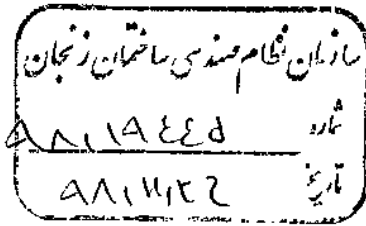 سازمان نظام مهندسی ساختمان زنجان
شماره ۹۸،۱۹۴۴۵
تاریخ ۹۸،۱۱،۲۶